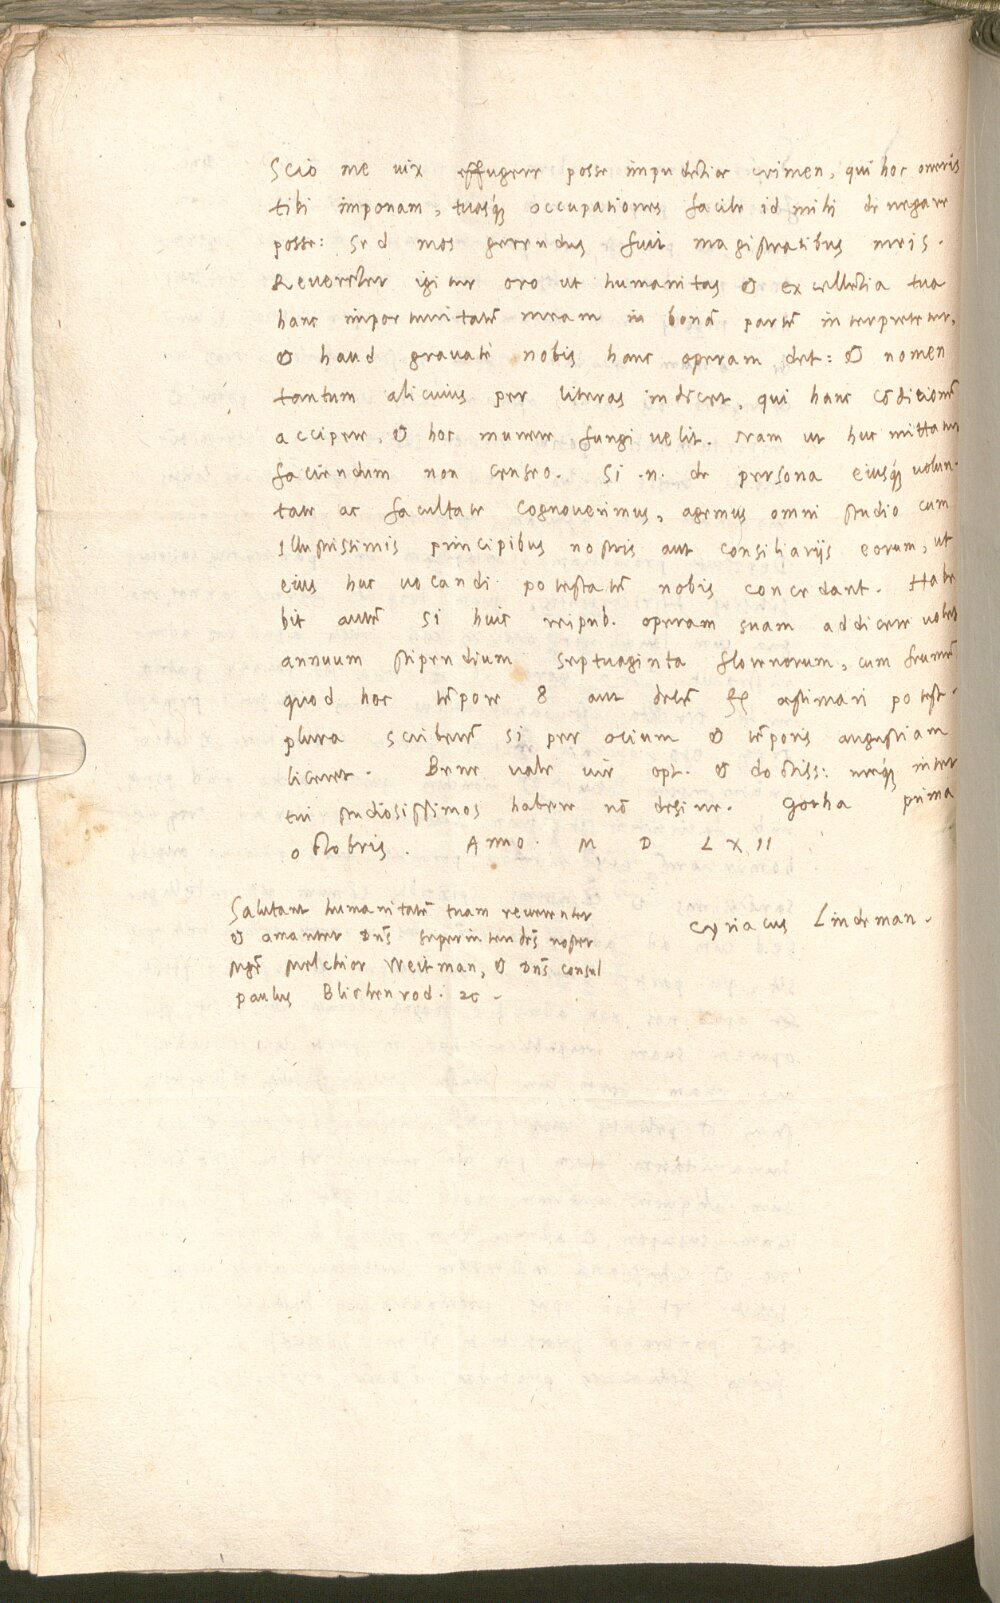 Scio me uix effugere posse impudẽtiae crimen, qui hoc oneris
tibi imponam, tuasq́ꝫ occupationes facile id mihi denegare
posse: Sed mos gerendus fuit magistratibus meis.
Reuerẽter igitur oro ut humanitas & excellẽtia tua
hanc importunitatẽ meam in bonã partẽ interpretetur,
& haud grauatè nobis hanc operam det: & nomen
tantum alicuius per literas indicet, qui hanc cõditionẽ
accipere, & hoc munere fungi uelit. Nam ut huc mittatur
faciendum non censeo. Si .n. de persona eiusq́ꝫ uolun-
tate ac facultate cognouerimus, agemus omni studio cum
Illustrissimis principibus nostris aut consiliarijs eorum, ut
eius huc uocandi potestatẽ nobis concedant. Habe
bit autẽ si huic reipub. operam suam addicere uolet
annuum stipendium septuaginta florenorum, cum frumẽ
quod hoc tẽpore 8 aut decẽ fl aestimari potest.
plura scriberẽ si per ocium & tẽporis angustiam
liceret. Bene uale uir opt. & doctiss: meq́ꝫ inter
tui studiosissimos habere nõ desine. Gotha prima
octobris. Anno. M D L X II
Salutant humanitatẽ tuam reuerenter
& amanter Dñs superintendẽs noster
Mgr̃ Melchior Weitman, & Dñs consul
paulus Blichenrod. ꝛc.
Cyriacus Lindeman.